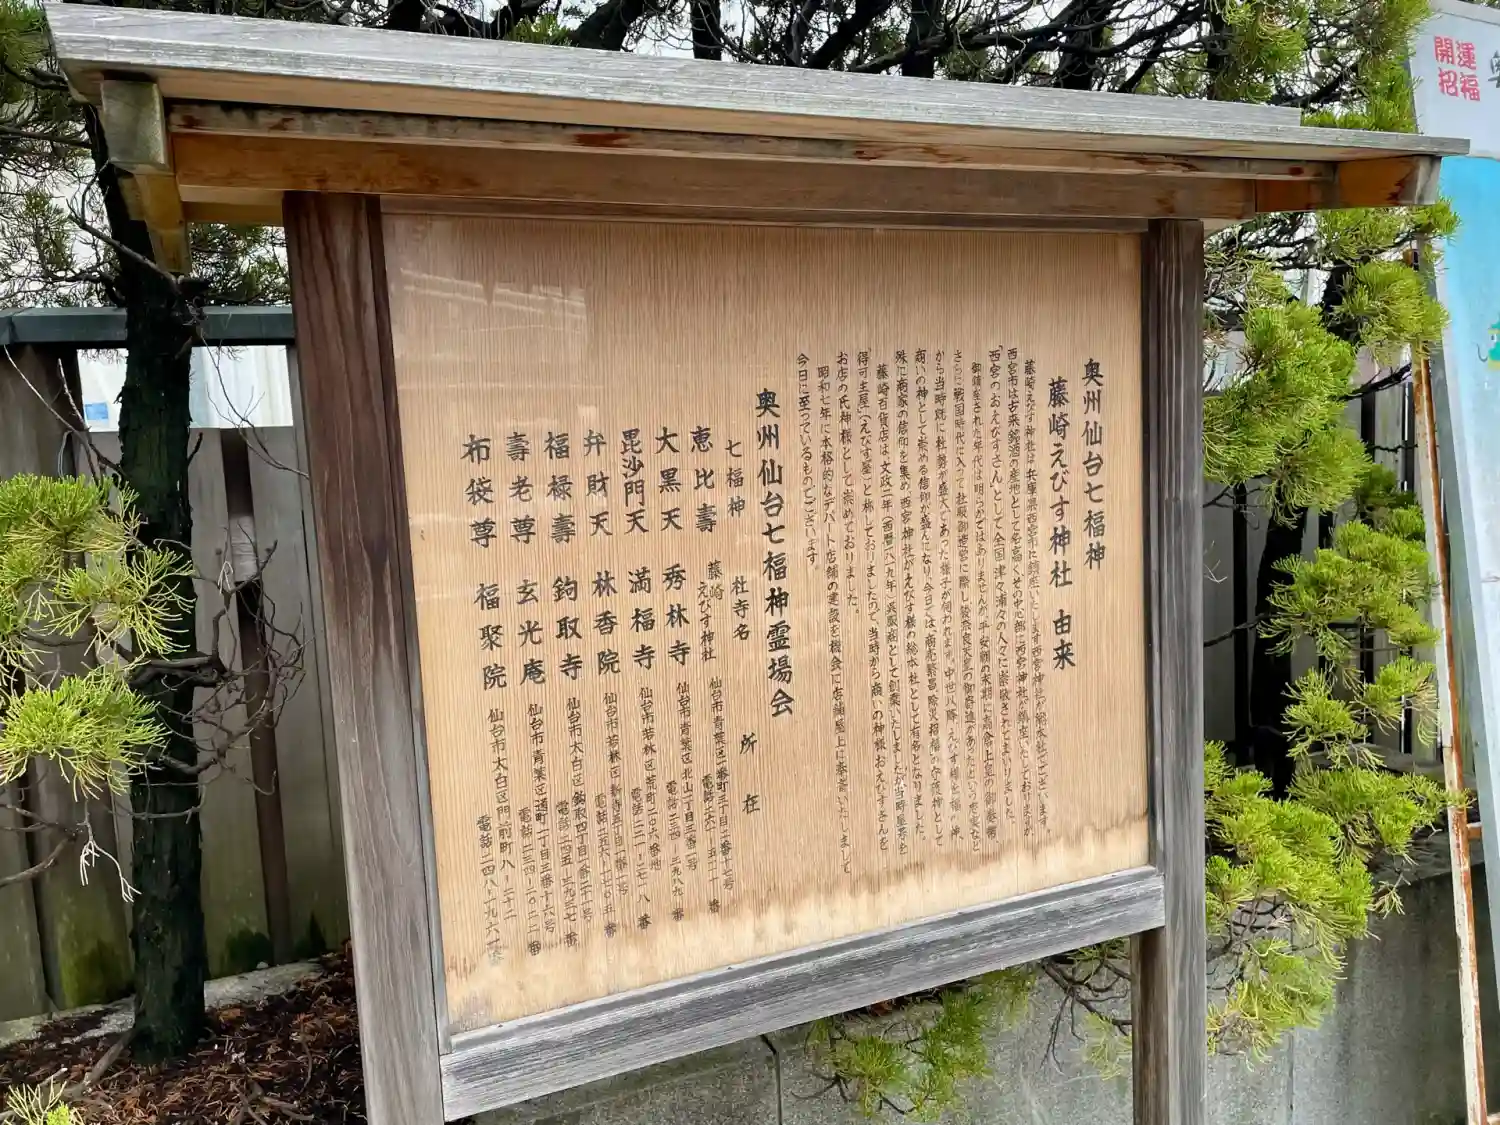 奥州仙台七福神
藤崎えびす神社　由来
藤崎えびす神社は兵庫県西宮市に鎮座いたします西宮神社が総本社でございます。
西宮市は古来銘酒の産地として名高くその中心部に西宮神社が鎮座いたしておりますが
「西宮のおえびすさん」として全国津々浦々の人々に崇敬されてまいりました。
御鎮座された年代は明らかではありませんが平安朝の末期に高倉上皇の御奉幣、
さらに戦国時代に入って社殿御造営に際し後奈良天皇の御寄進があったという史実など
から当時既に社勢が盛大であった様子が伺われます。中世以降、えびす様は福の神、
商いの神として崇める信仰が盛んになり、今日では「商売繁昌、除災招福」の守護神として
殊に商家の信仰を集め、西宮神社がえびす様の総本社として有名となりました。
藤崎百貨店は、文政二年(西暦一八一九年)呉服商として創業いたしましたが当時屋号を
「得可主屋」(えびす屋)と称しておりましたので、当時から商いの神様、おえびすさんを
お店の氏神様として崇めておりました。
昭和七年に本格的なデパート店舗の建設を機会に店舗屋上に奉斎いたしまして
今日に至っているものでございます。
奥州仙台七福神霊場会
七福神　社寺名　所在
恵比壽　藤崎えびす神社　仙台市青葉区一番町三丁目二番十七号
大黒天　秀林寺　仙台市青葉区北山一丁目三番一号
毘沙門天　満福寺　仙台市若林区荒町二〇六番地
弁財天　林香院　仙台市若林区新寺五丁目一番一号
福禄壽　鉤取寺　仙台市太白区鈎取四丁目一番二十一号
壽老尊　玄光庵　仙台市青葉区通町一丁目三番十六号
布袋尊　福聚院　仙台市太白区門前町八ー二十二
開運
招福